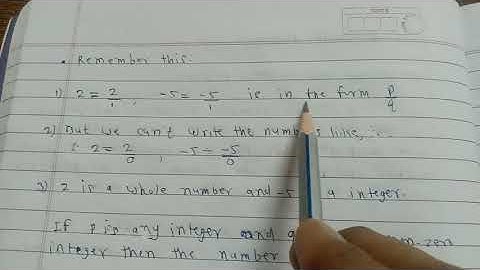 • Remember this:
1) 2 = 2/1 , -5 = -5/1 ie in the form p/q
2) But we can't write the numbers like,
2 = 2/0 , -5 = -5/0
3) 2 is a whole number and -5 a integer.
If p is any integer and
integer then the number